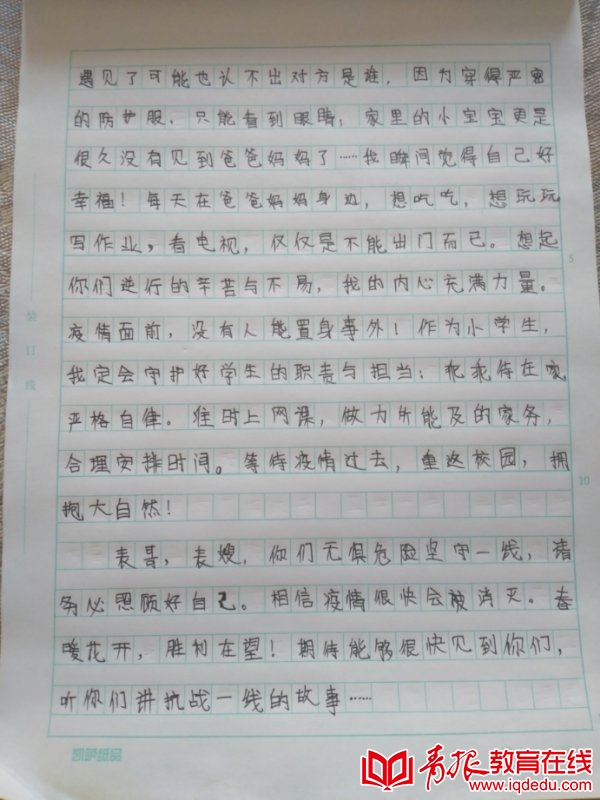 遇见了可能也认不出对方是谁，因为穿得严密
的防护服，只能看到眼睛；家里的小宝宝更是
很久没有见到爸爸妈妈了……我瞬间觉得自己好
幸福！每天在爸爸妈妈身边，想吃吃，想玩玩
写作业，看电视，仅仅是不能出门而已。想起
你们逆行的辛苦与不易，我的内心充满力量。
疫情面前，没有人能置身事外！作为小学生，
我定会守护好学生的职责与担当；乖乖待在家
严格自律。准时上网课，做力所能及的家务，
合理安排时间。等待疫情过去，重返校园，拥
抱大自然！
表哥，表嫂，你们无惧危险坚守一线，请
务必照顾好自己。相信疫情很快会被消灭。春
暖花开，胜利在望！期待能够很快见到你们，
听你们讲抗战一线的故事……
装订线
5
10
凯萨纸品
青报教育在线
www.iqdedu.com